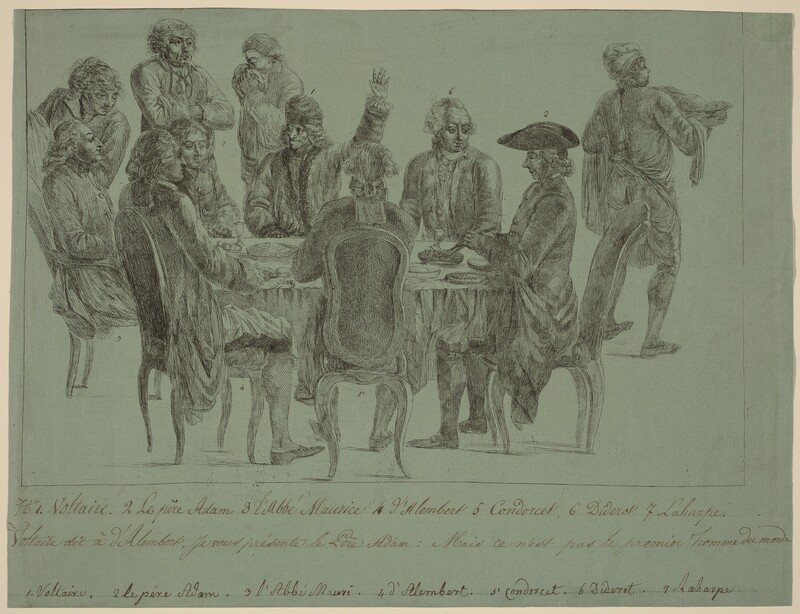 1
6
2
7
3
4
5
No 1. Voltaire. 2 Le père Adam 3 l'Abbé Maurice 4 d'Alembert 5 Condorcet, 6 Diderot 7 Laharpe.
Voltaire dit à d'Alembert, Je vous présente le Père Adam : Mais ce n'est pas le premier homme du monde
1. Voltaire. 2 le pére Adam. 3 l'abbé Mauri. 4 d'Alembert. 5 Condorcet. 6 Dideret. 7 Laharpe